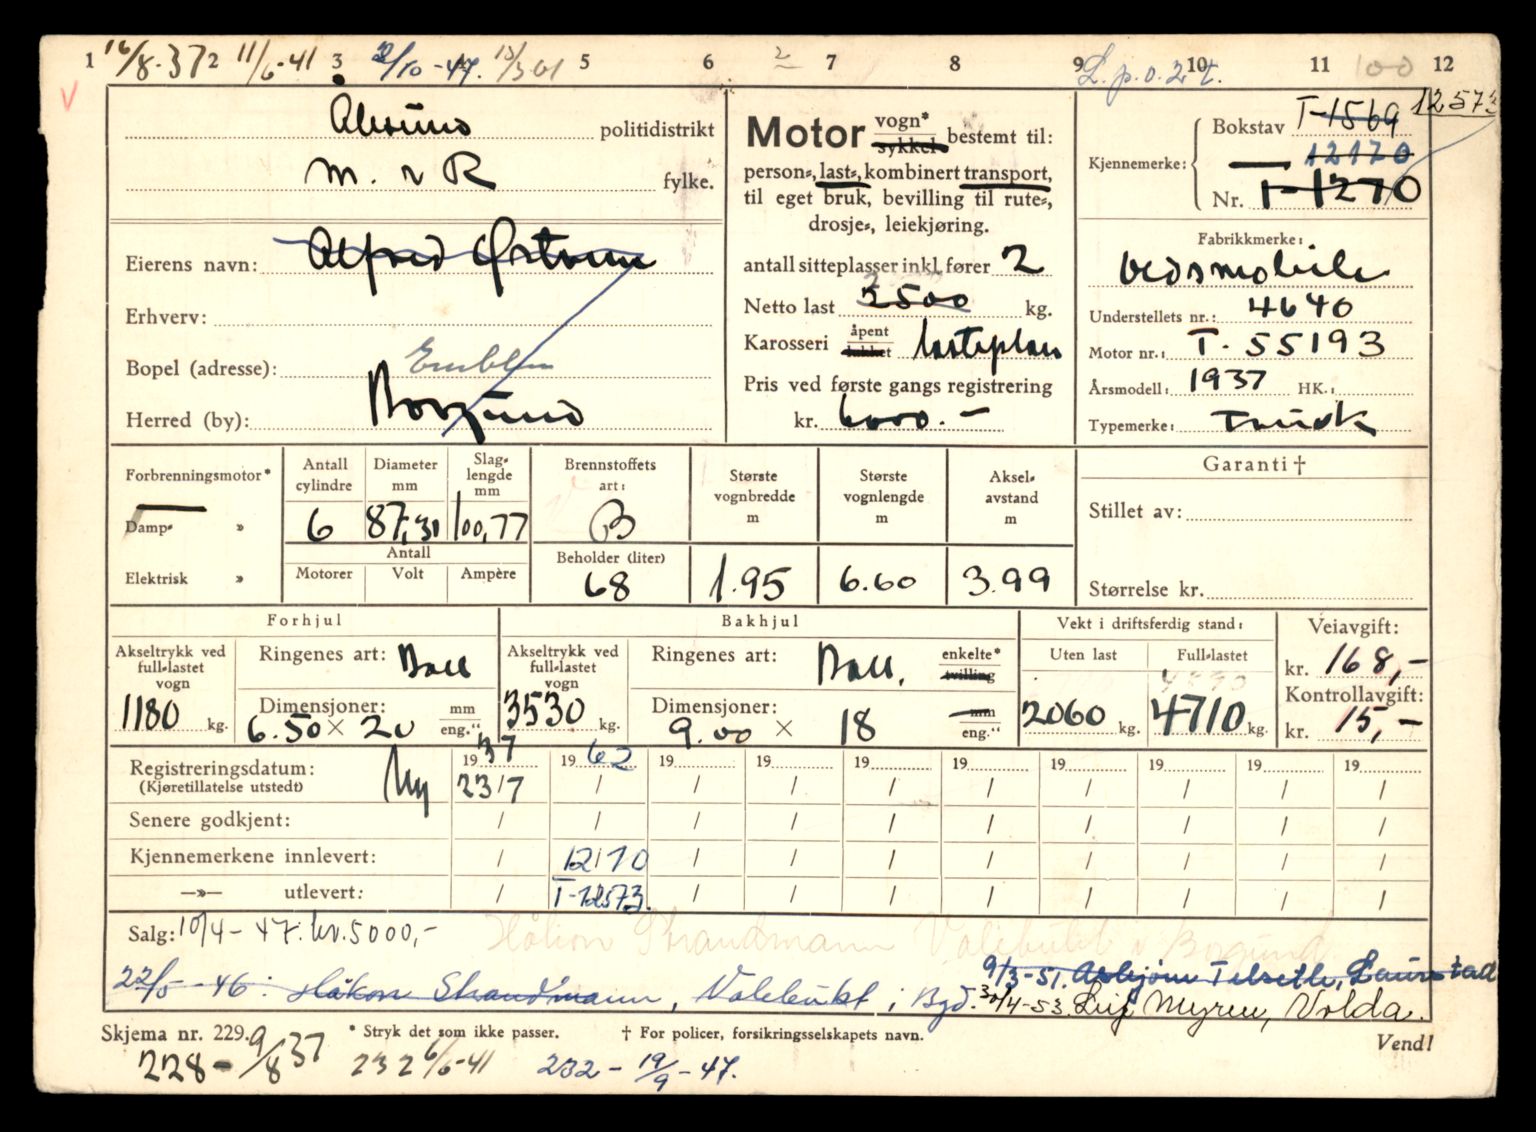 1 16/8-37 2 11/6-41 3 22/10-47. 13/3 61 5 6 2 7 8 9 10 11 100 12
L.p.o. 2 t.
V
Ålesund politidistrikt
M. & R fylke.
Eierens navn: Alfred
Erhverv:
Bopel (adresse): Emblem
Herred (by): Borgund
Motor vogn* sykkel bestemt til:
person-, last-, kombinert transport,
til eget bruk, bevilling til rute-,
drosje-, leiekjøring.
antall sitteplasser inkl. fører 2
Netto last 2500 kg.
Karosseri åpent lukket lasteplan
Pris ved første gangs registrering
kr. 6000.-
Kjennemerke: Bokstav T-1569 12573
12170
Nr. T-1270
Fabrikkmerke:
Oldsmobile
Understellets nr.: 4640
Motor nr.: T. 55193
Årsmodell: 1937 HK.:
Typemerke: Truck
Forbrenningsmotor*
Damp- »
Elektrisk »
Antall cylindre 6
Diameter mm 87,30
Slaglengde mm 100,77
Antall
Motorer Volt Ampère
Brennstoffets art: B
Beholder (liter) 68
Største vognbredde m 1.95
Største vognlengde m 6.60
Akselavstand m 3.99
Garanti †
Stillet av:
Størrelse kr.
Forhjul
Akseltrykk ved full-lastet vogn 1180 kg.
Ringenes art: Ball
Dimensjoner: 6.50 × 20 mm eng."
Bakhjul
Akseltrykk ved full-lastet vogn 3530 kg.
Ringenes art: Ball. enkelte* tvilling
Dimensjoner: 9.00 × 18 mm eng."
Vekt i driftsferdig stand:
Uten last 2060 kg.
Full-lastet 4710 kg.
Veiavgift:
kr. 168,-
Kontrollavgift:
kr. 15,-
Registreringsdatum: Ny 1937 1962 19 19 19 19 19 19 19 19
(Kjøretillatelse utstedt) 23/7 / / / / / / / / /
Senere godkjent: / / / / / / / / / /
Kjennemerkene innlevert: / 12170 / / / / / / / /
—»— utlevert: / T-12573. / / / / / / / /
Salg: 10/4-47. kr. 5000,- Håkon Strandmann Valebukt i Borgund
22/5-46: Håkon Strandmann, Valebukt i Bgd. 9/3-51. Asbjørn Telseth, 30/4-53 Leif Myren, Volda.
Skjema nr. 229. * Stryk det som ikke passer. † For policer, forsikringsselskapets navn. Vend!
228- 9/8 37 232 6/6-41 232 - 19/9-47.